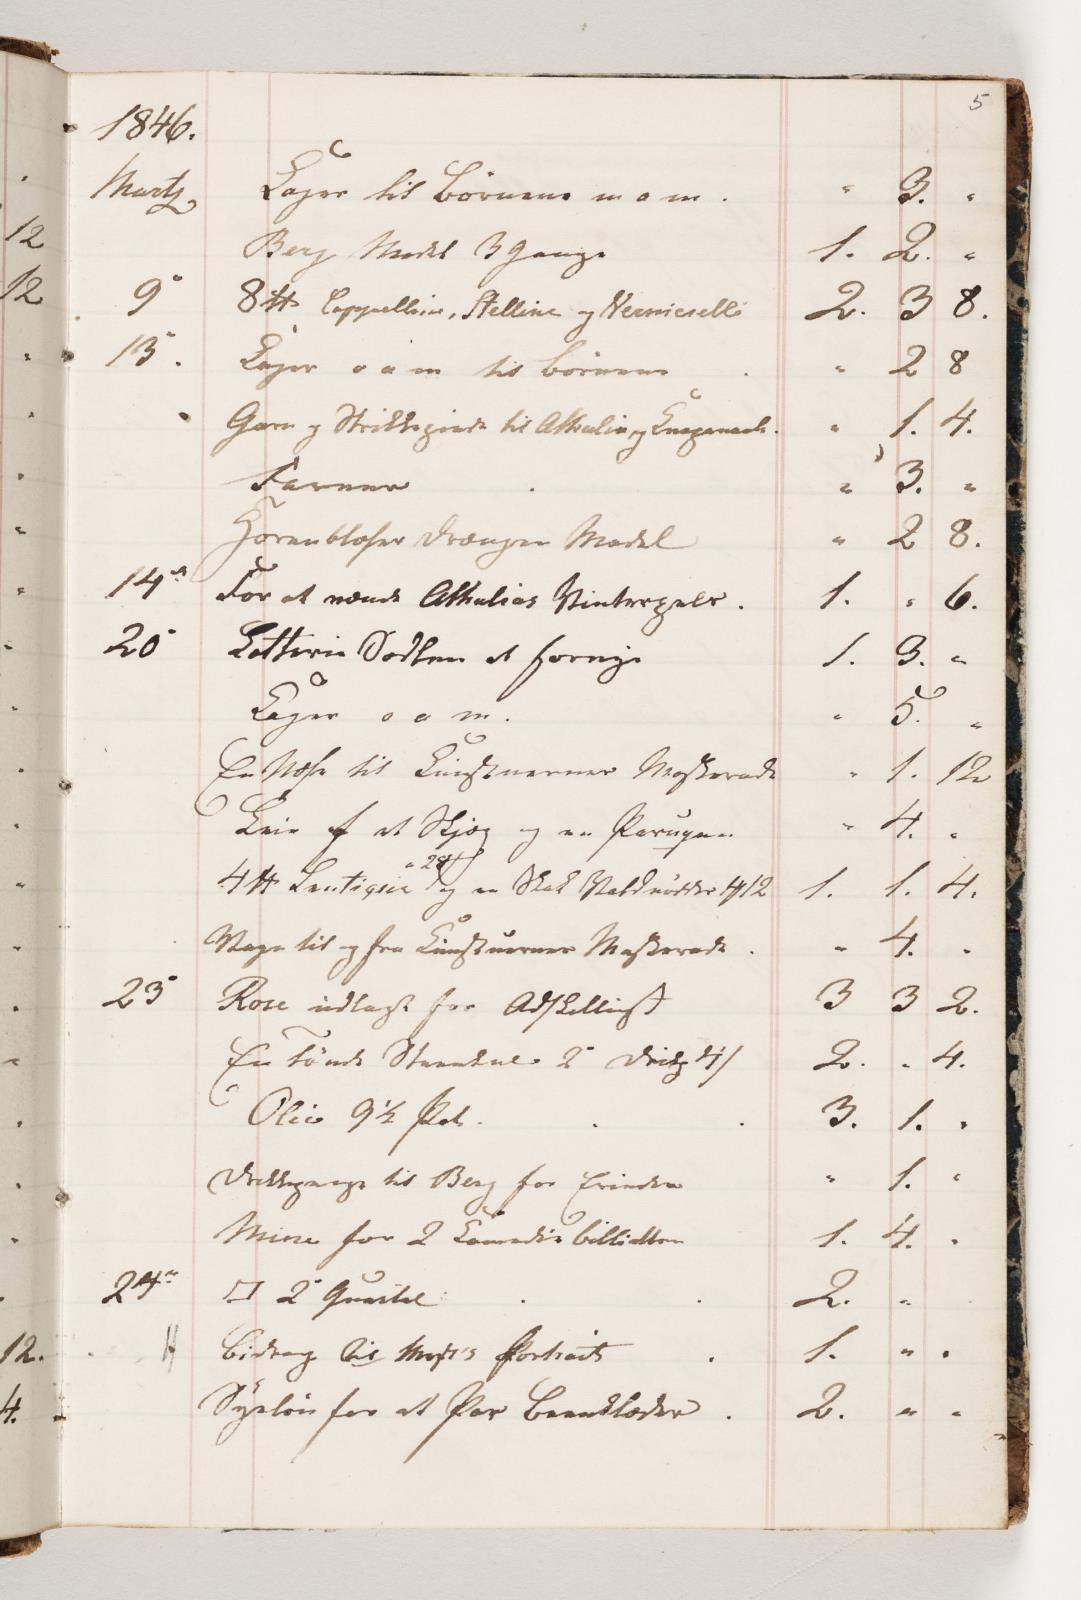 5
1846.
Martz Kager til Börnene m a m. " 3. "
Berg Model 3 Gange 1. 2. "
9 8 ℔ Cappellini, Stelline og Vermicelli 2. 3 8.
13. Kager o a m til Börnene " 2 8
Garn og Strikkepinde til Athalia og " 1. 4.
Farver " 3. "
Hornblæser Drengen Model " 2 8.
14 For at vende Athalias Vinterpels. 1. " 6.
20 Lotterie Sedlen at fornye 1. 3. "
Kager o a m. " 5. "
En Næse til Kunstnernes Maskerade " 1. 12
Leie af et Skjæg og en Paryquen " 4. "
" 28
4 ℔ og en Sæk Valdnödder 1. 1. 4.
Vogn til og fra Kunstnernes Maskerade. " 4. "
23 Rose udlagt for Adskilligt 3 3 2.
En Tönde Steenkul 2. " 4.
Olie 9½ Pot. 3. 1. "
Drikkepenge til Berg for Erinden " 1. "
Mine for 2 Comedie billetter 1. 4. "
24 □ 2 Quartal 2. "
Bidrag til Portrait 1. " "
Syelön for et Par Beenklæder. 2. " "
12
12
12.
4.